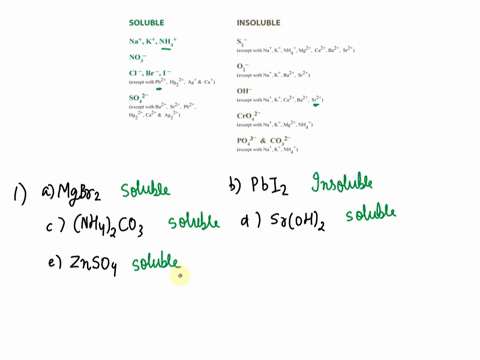 SOLUBLE
Na⁺, K⁺, NH₄⁺
NO₃⁻
Cl⁻, Br⁻, I⁻
(except with Pb²⁺, Hg₂²⁺, Ag⁺ & Cu⁺)
SO₄²⁻
(except with Ba²⁺, Sr²⁺, Pb²⁺,
Hg₂²⁺, Ca²⁺ & Ag₂²⁺)
INSOLUBLE
S₂⁻
(except with Na⁺, K⁺, NH₄⁺, Mg²⁺, Ca²⁺, Ba²⁺, Sr²⁺)
O₂⁻
(except with Na⁺, K⁺, Ba²⁺, Sr²⁺)
OH⁻
(except with Na⁺, K⁺, Ca²⁺, Ba²⁺, Sr²⁺)
CrO₄²⁻
(except with Na⁺, K⁺, Mg²⁺, NH₄⁺)
PO₄³⁻ & CO₃²⁻
(except with Na⁺, K⁺, NH₄⁺)
1) a) MgBr₂ Soluble b) PbI₂ Insoluble
c) (NH₄)₂CO₃ soluble d) Sr(OH)₂ soluble
e) ZnSO₄ soluble